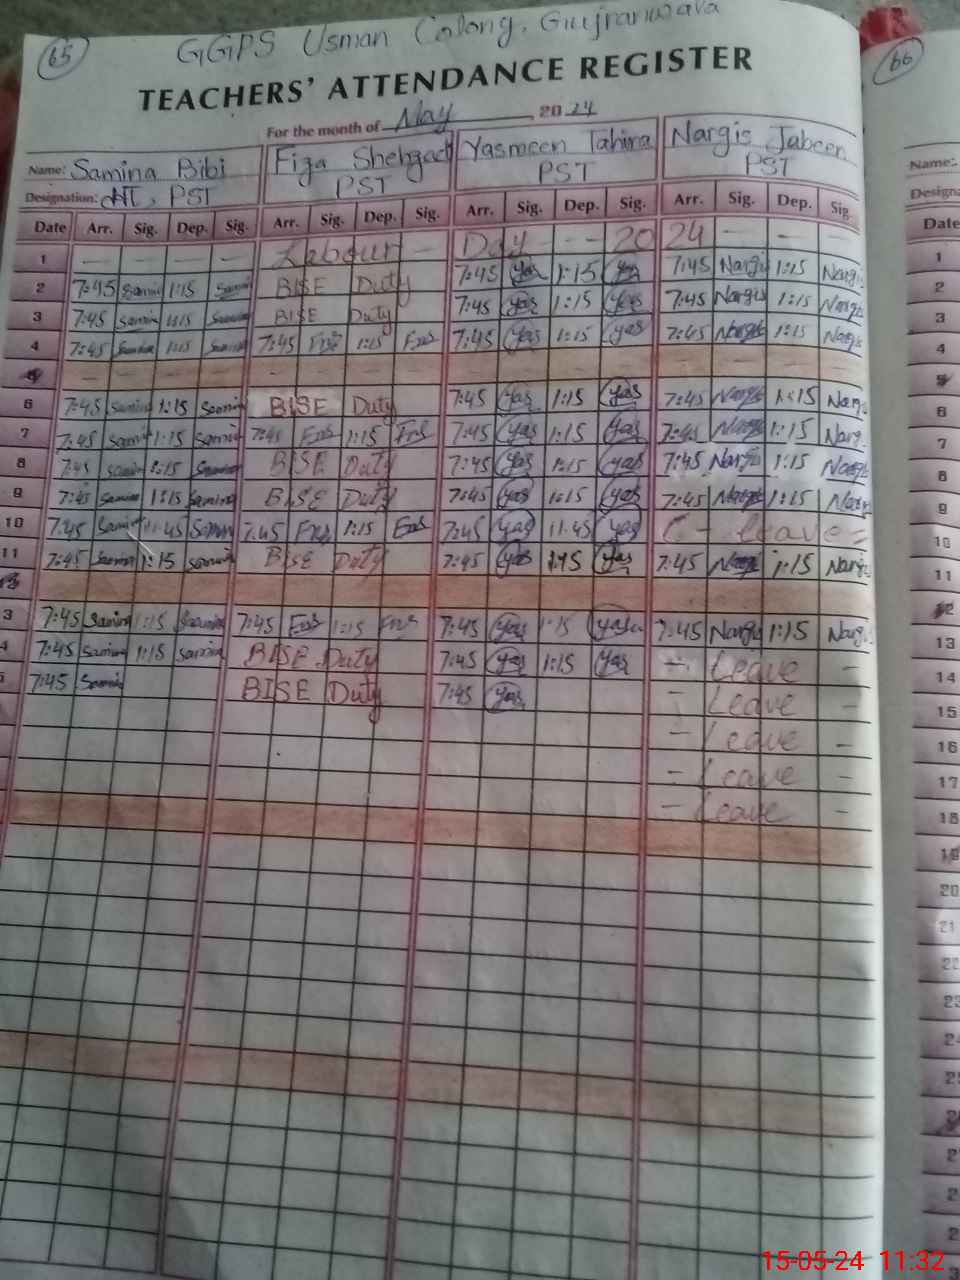 65
GGPS Usman Colony, Gujranwala
66
TEACHERS' ATTENDANCE REGISTER
For the month of May 2024
Name: Samina Bibi Fiza Shehzadi Yasmeen Tahira Nargis Jabeen
Designation: HT, PST PST PST PST
Date Arr. Sig. Dep. Sig. Arr. Sig. Dep. Sig. Arr. Sig. Dep. Sig. Arr. Sig. Dep. Sig.
1 — — — — Labour Day - - 20 24 — — —
2 7:45 Samina 1:15 Samina BISE Duty 7:45 Yas 1:15 Yas 7:45 Nargis 1:15 Nargis
3 7:45 Samina 1:15 Samina BISE Duty 7:45 Yas 1:15 Yas 7:45 Nargis 1:15 Nargis
4 7:45 Samina 1:15 Samina 7:45 1:15 7:45 Yas 1:15 Yas 7:45 Nargis 1:15 Nargis
5
6 7:45 Samina 1:15 Samina BISE Duty 7:45 Yas 1:15 Yas 7:45 Nargis 1:15 Narg
7 7:45 Samina 1:15 Samina 7:45 1:15 7:45 Yas 1:15 Yas 7:45 Nargis 1:15 Narg
8 7:45 Samina 1:15 Samina BISE Duty 7:45 Yas 1:15 Yas 7:45 Nargis 1:15 Nargis
9 7:45 Samina 1:15 Samina BISE Duty 7:45 Yas 1:15 Yas 7:45 Nargis 1:15 Nargis
10 7:45 Samina 11:45 Samina 7:45 1:15 7:45 Yas 11:45 Yas C - Leave
11 7:45 Samina 1:15 Samina BISE Duty 7:45 Yas Yas 7:45 Nargis 1:15 Nargis
12
3 7:45 Samina 1:15 Samina 7:45 1:15 7:45 Yas 1:15 Yas 7:45 Nargis 1:15 Nargis
4 7:45 Samina 1:15 Samina BISE Duty 7:45 Yas 1:15 Yas - Leave -
7:45 Samina BISE Duty 7:45 Yas - Leave -
- Leave -
- Leave -
- Leave -
Name:
Designa
Date
1
2
3
4
5
6
7
8
9
10
11
12
13
14
15
16
17
18
19
20
21
22
23
15-05-24 11:32